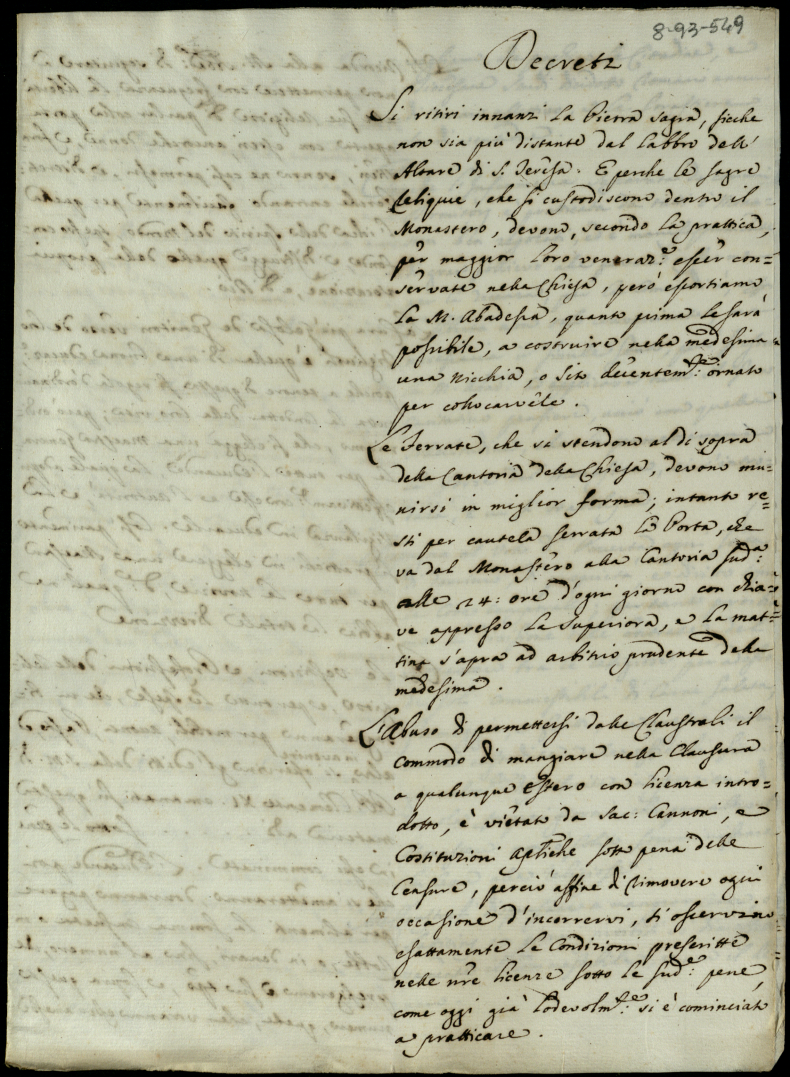 8-93-549
Decreti
Si ritiri innanzi la Pietra sagra, sicche
non sia più distante dal labbro dell'
Altare di S. Teresa. E perche le sagre
Reliquie, che si custodiscono dentro il
Monastero, devono, secondo la prattica,
per maggior loro veneraz.e esser con=
servate nella Chiesa, però esortiamo
la M. Abadessa, quanto prima le sarà
possibile, a costruire nella medesima
una Nicchia, o sito decentem.te ornato
per collocarvele.
Le Ferrate, che si stendono al di sopra
della Cantoria della Chiesa, devono mu=
nirsi in miglior forma; intanto re=
sti per cautela serrata la Porta, che
va dal Monastero alla Cantoria sud.a
alle 24: ore d'ogni giorno con chia=
ve appresso la Superiora, e la mat=
tina s'apra ad arbitrio prudente della
medesima.
L'Abuso di permettersi dalle Claustrali il
commodo di mangiare nella Clausura
a qualunque Estero con licenza intro=
dotto, è vietato da Sac: Cannoni, e
Costituzioni Aplīche sotto pena delle
Censure, perciò affine di rimovere ogni
occasione d'incorrervi, si osservino
esattamente le Condizioni prescritte
nelle nr̄e licenze sotto le sud.e pene,
come oggi già lodevolm.te si è cominciato
a pratticare.